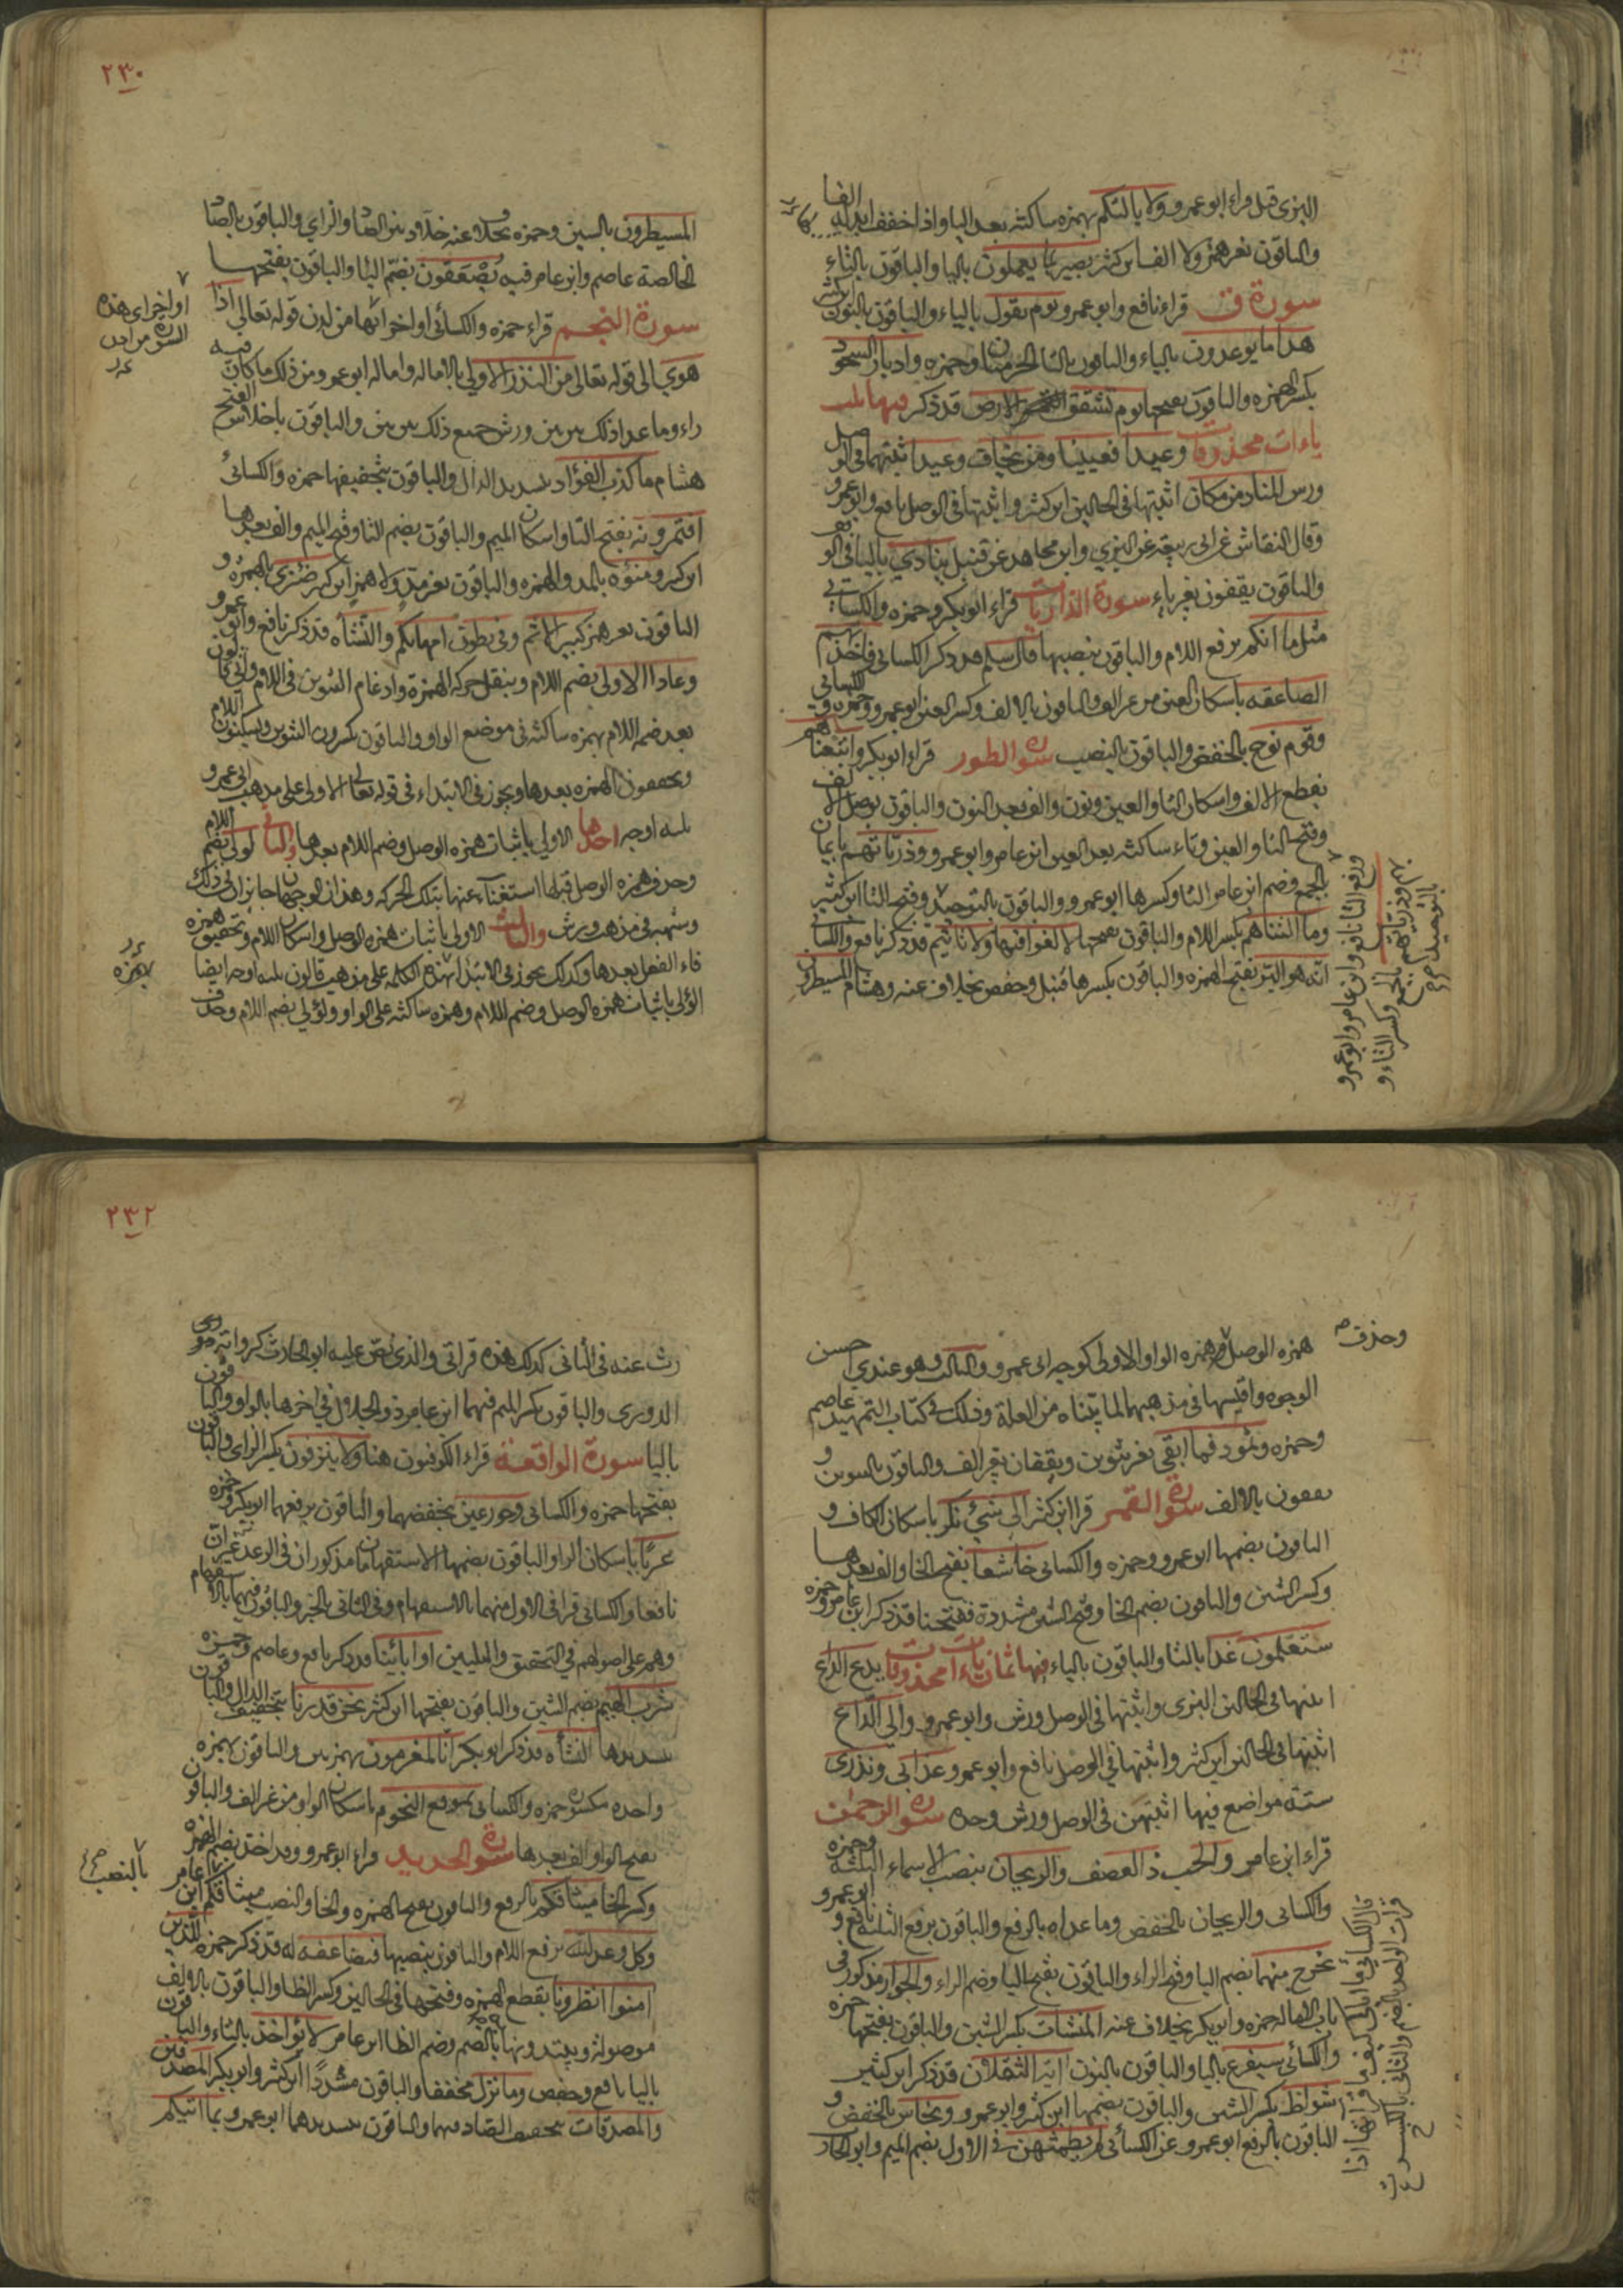 البزي قبل قراء ابو عمرو ولا يالتكم بهمزه ساكنه بعد اليا واذا خفف ابدلها الفا
والباقون بغير همز ولا الف ابن كثير بصير بما يعملون باليا والباقون بالتاء
سورة ق قراء نافع وابو عمرو يوم يقول بالياء والباقون بالنون ابن كثير
هذا ما يوعدون بالياء والباقون بالتا الحرميان وحمزه وادبار السجود
بكسر الهمزه والباقون بفتحها يوم تشقق الارض قد ذكر فيها ثلث
ياءات محذوفات وعيد افعيينا ومن يخاف وعيد اثبتهما في الوصل
ورش المناد من مكان اثبتها في الحالين ابن كثير واثبتها في الوصل نافع وابو عمرو
وقال النقاش عن ابي ربيعة عن البزي وابن مجاهد عن قنبل ينادي باليا في الوقف
والباقون يقفون بغير ياء سورة الذاريات قراء ابو بكر وحمزه والكسائي
مثل ما انكم برفع اللام والباقون بنصبها قال سلم قد ذكر الكسائي فاخذتهم
الصاعقه باسكان العين من غير الف والباقون بالالف وكسر العين ابو عمرو وحمزه والكسائي
وقوم نوح بالخفض والباقون بالنصب سورة الطور قراء ابو بكر واتبعناهم
بقطع الالف واسكان التا والعين ونون والف بعد النون والباقون بوصل الالف
وفتح التا والعين وتاء ساكنه بعد العين ابن عامر وابو عمرو وذرياتهم بايمان
بالجمع وضم ابن عامر التا وكسرها ابو عمرو والباقون بالتوحيد وفتح التا ابن كثير
وما التناهم بكسر اللام والباقون بفتحها لا لغو فيها ولا تاثيم قد ذكر نافع والكسائي
انه هو البر بفتح الهمزه والباقون بكسرها قنبل وحفص بخلاف عنه وهشام المسيطرون
ورفع التا نافع وابن عامر وابو عمرو
بهم ذرياتهم بالجمع وكسر التاء و
بالتوحيد
٢٣٠
المسيطرون بالسين وحمزه بخلاف عنه خلاد بين الصاد والزاي والباقون بالصاد
الخالصة عاصم وابن عامر فيه يصعقون بضم اليا والباقون بفتحها
سورة النجم قراء حمزه والكسائي اواخر ائها من لدن قوله تعالى اذا
هوي الى قوله تعالى من النذر الاولي بالاماله واماله ابو عمرو من ذلك ما كان فيه
راء وما عدا ذلك بين بين ورش جميع ذلك بين بين والباقون باخلاص الفتح
هشام ما كذب الفؤاد بتشديد الذال والباقون بتخفيفها حمزه والكسائي
افتمرونه بفتح التا واسكان الميم والباقون بضم التا وفتح الميم والف بعدها
ابن كثير ومنوة بالمد والهمزه والباقون بغير مد ولا همز ابن كثير ضئزي بالهمزه و
الباقون بغير همز كبير الاثم وفي بطون امهاتكم والنشاه قد ذكر نافع وابو عمرو
وعادا الاولي بضم اللام وبنقل حركه الهمزة وادغام التنوين في اللام واتي قالون
بعد ضمه اللام بهمزه ساكنه في موضع الواو والباقون يكسرون التنوين ويسكنون اللام
ويحققون الهمزه بعدها ويجوز في الابتداء في قوله تعالى الاولى على مذهب ابي عمرو
ثلثه اوجه احدها الاولي باثبات همزه الوصل وضم اللام بعدها والثاني لولى بضم اللام
وحذف همزه الوصل قبلها استغناء عنها بتلك الحركه وهذان الوجهان جايزان في ذلك
وشبهه في مذهب ورش والثالث الاولى باثبات همزه الوصل واسكان اللام وتحقيق همزه
فاء الفعل بعدها وكذلك يجوز في الابتداء بهذه الكلمه على مذهب قالون ثلثه اوجه ايضا
الؤلى باثبات همزه الوصل وضم اللام وهمزه ساكنه على الواو ولؤلى بضم اللام وحذف
اواخر اي هذه
السورة من لدن
بهمزه
وحذف
همزه الوصل وهمزه الواو الاولى كوجه ابي عمرو والثالث وهو عندي احسن
الوجوه واقيسها في مذهبهما لما بيناه من العلة وذلك في كتاب التمهيد عاصم
وحمزه وثمود فما ابقي بغير تنوين ويقفان بغير الف والباقون بالتنوين و
يقفون بالالف سورة القمر قرا ابن كثير الى شئ نكر باسكان الكاف و
الباقون بضمها ابو عمرو وحمزه والكسائي خاشعا بفتح الخا والف بعدها
وكسر الشين والباقون بضم الخا وفتح الشين مشددة ففتحنا قد ذكر ابن عامر وحمزه
ستعلمون غدا بالتا والباقون بالياء فيها ثمان ياءات محذوفات يدع الداع
اثبتها في الحالين البزي واثبتها في الوصل ورش وابو عمرو والى الداع
اثبتها في الحالين ابن كثير واثبتها في الوصل نافع وابو عمرو عذابي ونذري
ستة مواضع فيها اثبتهن في الوصل ورش وحده سورة الرحمن
قراء ابن عامر والحب ذ العصف والريحان بنصب الاسماء الثلثة وحمزه
والكسائي والريحان بالخفض وما عداه بالرفع والباقون برفع الثلثه نافع وابو عمرو
يخرج منهما بضم اليا وفتح الراء والباقون بفتح اليا وضم الراء والجوار مذكور في
باب الاماله حمزه وابو بكر بخلاف عنه المنشات بكسر الشين والباقون بفتحها حمزه
والكسائي سيفرغ باليا والباقون بالنون ايه الثقلان قد ذكر ابن كثير
شواظ بكسر الشين والباقون بضمها ابن كثير وابو عمرو ونحاس بالخفض و
الباقون بالرفع ابو عمرو عن الكسائي لم يطمثهن في الاول بضم الميم وابو الحار
٢٣٢
رث عنه في الثاني كذلك هذه قراتي والذي نص عليه ابو الحارث كرواية الدوري
الدوري والباقون بكسر الميم فيهما ابن عامر ذو الجلال في اخرها بالواو والباقون
باليا سورة الواقعة قراء الكوفيون هنا ولا ينزفون بكسر الزاي والباقون
بفتحها حمزه والكسائي وحور عين بخفضهما والباقون برفعهما ابو بكر وحمزه
عربا باسكان الراو والباقون بضمها الاستفهامان مذكوران في الرعد غير ان
نافعا والكسائي قرا في الاول منهما بالاستفهام وفي الثاني بالخبر والباقون فيهما بالاستفهام
وهم على اصولهم في التحقيق والتليين او اباؤنا قد ذكر نافع وعاصم وحمزه
شرب الهيم بضم الشين والباقون بفتحها ابن كثير نحن قدرنا بتخفيف الدال والباقون
بتشديدها النشأه قد ذكر ابو بكر انا لمغرمون بهمزتين والباقون بهمزه
واحده مكسوره حمزه والكسائي بموقع النجوم باسكان الواو من غير الف والباقون
بفتح الواو والف بعدها سورة الحديد قراء ابو عمرو وقد اخذ بضم الهمزه
وكسر الخا ميثاقكم بالرفع والباقون بفتح الهمزه والخا والنصب ميثاقكم ابن عامر
وكل وعد الله برفع اللام والباقون بنصبها فيضاعفه له قد ذكر حمزه للذين
امنوا انظرونا بقطع الهمزه وفتحها في الحالين وكسر الظا والباقون بالالف
موصولة ويبتدونها بالضم وضم الظا ابن عامر لا تؤاخذ بالتاء والباقون
باليا نافع وحفص وما نزل مخففا والباقون مشددا ابن كثير وابو بكر المصدقين
والمصدقات بتخفيف الصاد فيهما والباقون بتشديدهما ابو عمرو بما اتيكم
بالنصب